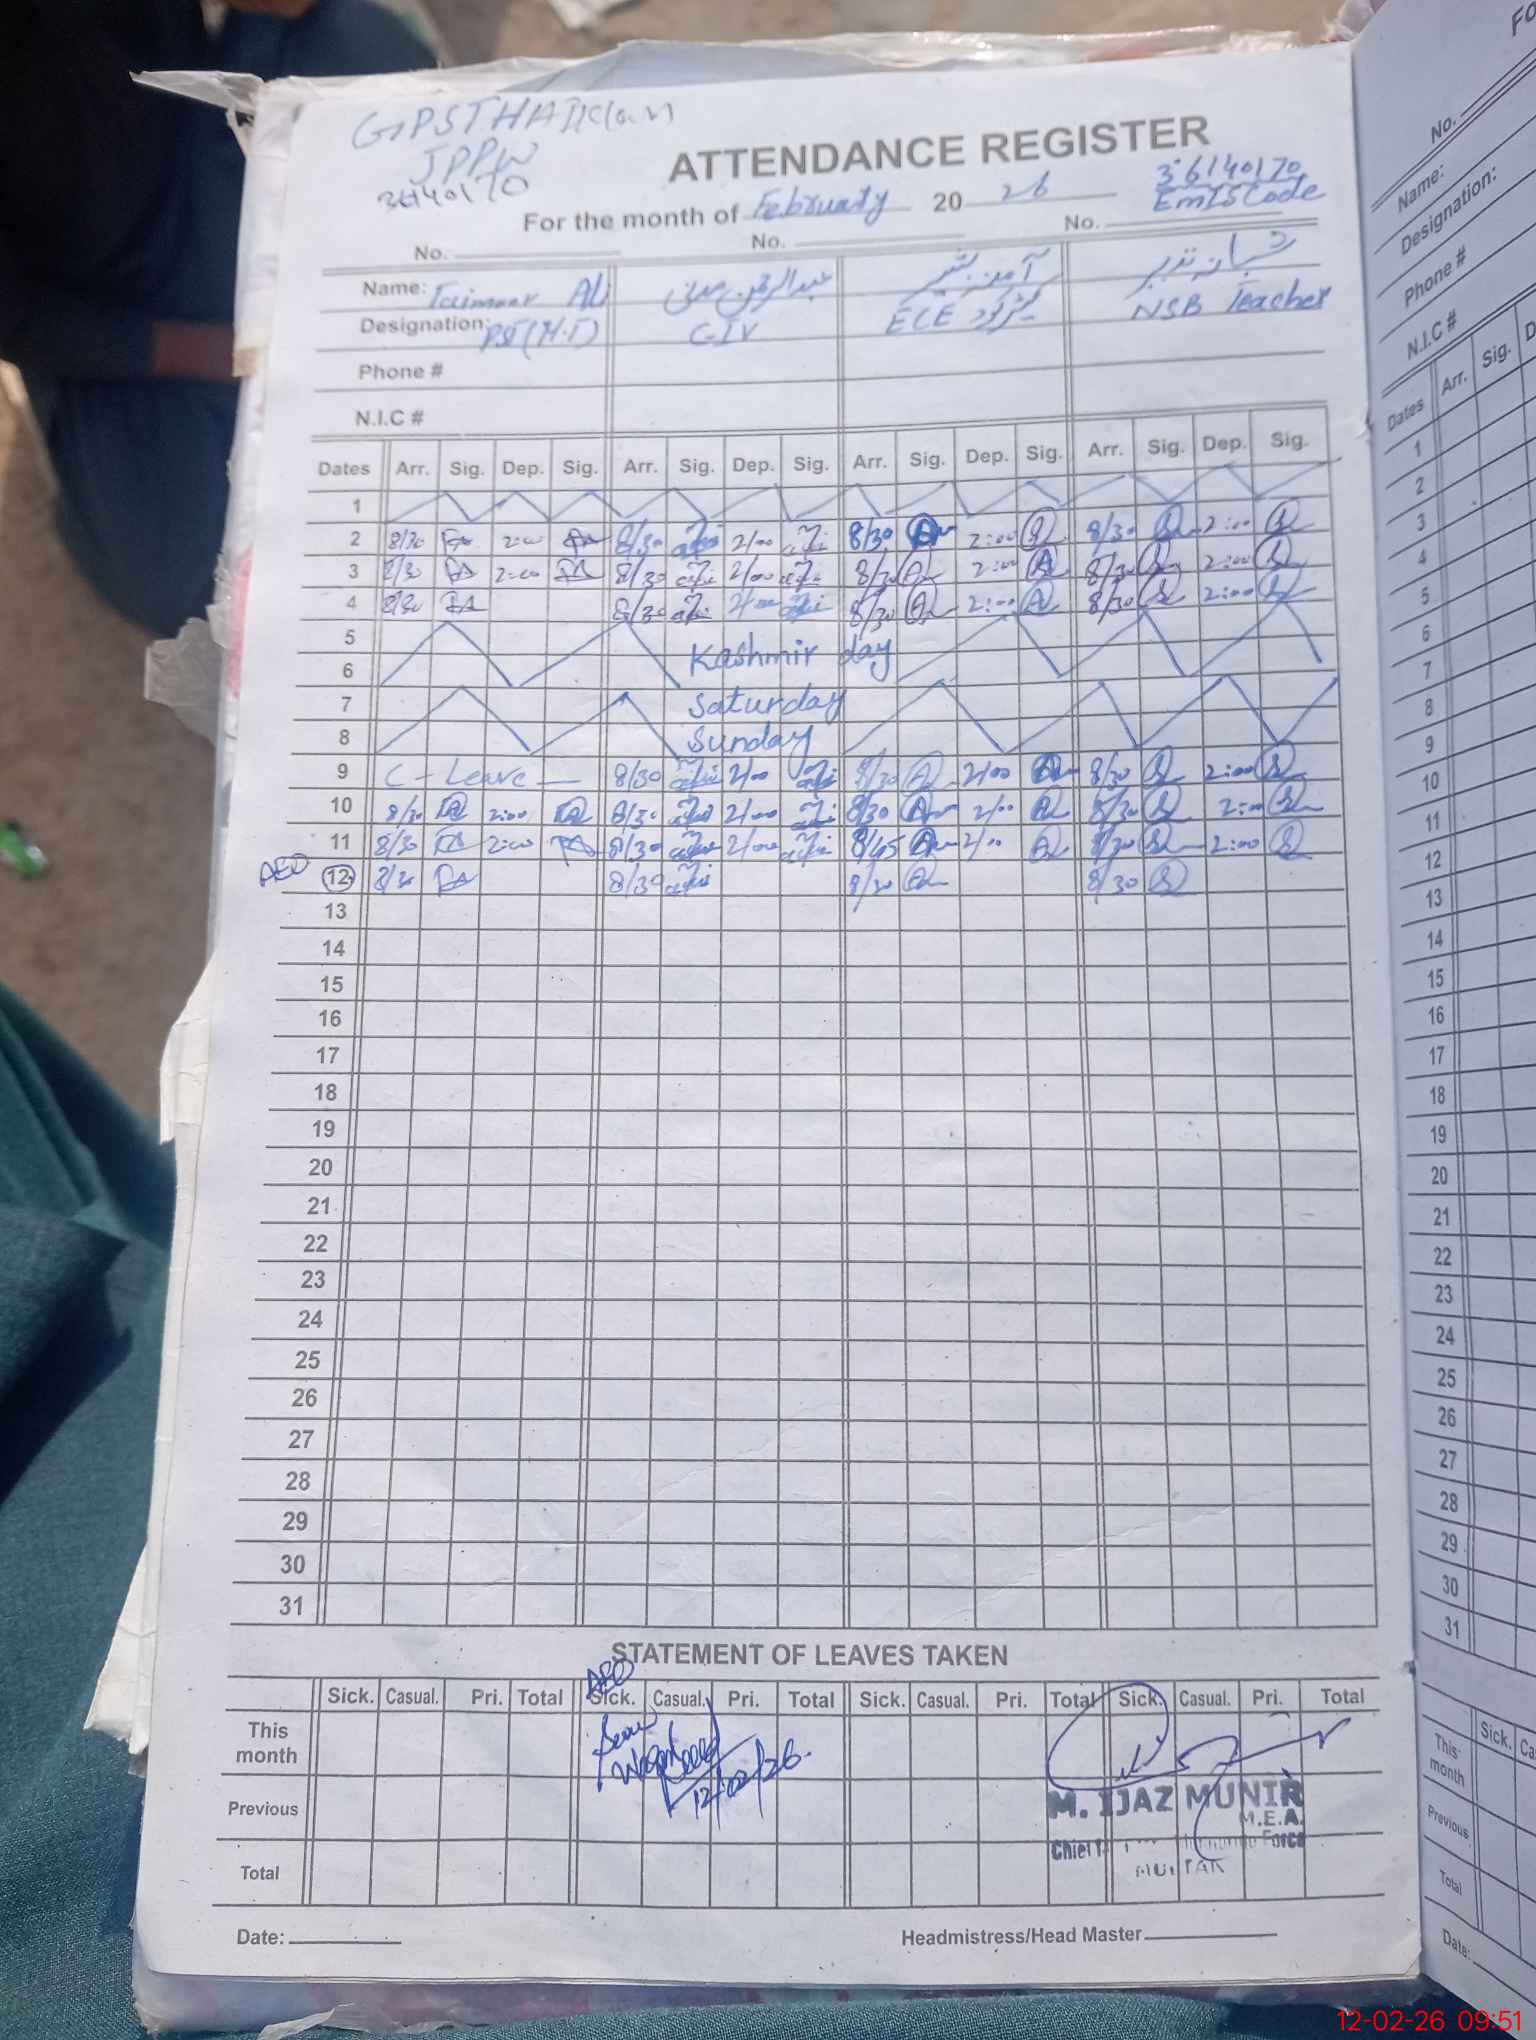 GPS THATTI Klan
JPPW
36140170
ATTENDANCE REGISTER
For the month of February 20 26
36140170
EmISCode
No. No. No.
Name: Taimoor Ali عبدالرحمن مدنی آمنہ بشیر شبانہ نذیر
Designation: PST(H.T) C-IV ECE کیئرگور NSB Teacher
Phone #
N.I.C #
Dates Arr. Sig. Dep. Sig. Arr. Sig. Dep. Sig. Arr. Sig. Dep. Sig. Arr. Sig. Dep. Sig.
1
2 8/30 TA 2:00 TA 8/30 2/00 8/30 2:00 8/30 2:00
3 8/30 TA 2:00 TA 8/30 2/00 8/30 2:00 8/30 2:00
4 8/30 TA 8/30 2/00 8/30 2:00 8/30 2:00
5
Kashmir day
6
7 Saturday
8 Sunday
9 C-Leave 8/30 2/00 8/30 2/00 8/30 2:00
10 8/30 TA 2:00 TA 8/30 2/00 8/30 2/00 8/30 2:00
11 8/30 TA 2:00 TA 8/30 2/00 8/45 2/00 8/30 2:00
AEO 12 8/30 TA 8/30 8/30 8/30
13
14
15
16
17
18
19
20
21
22
23
24
25
26
27
28
29
30
31
STATEMENT OF LEAVES TAKEN
AEO
Sick. Casual. Pri. Total Sick. Casual. Pri. Total Sick. Casual. Pri. Total Sick. Casual. Pri. Total
This month
Seen
12/02/26.
Previous
M. IJAZ MUNIR
M.E.A.
Force
Total
MULTAN
Date: Headmistress/Head Master
Fo
No.
Name:
Designation:
Phone #
N.I.C #
Dates Arr. Sig. D
1
2
3
4
5
6
7
8
9
10
11
12
13
14
15
16
17
18
19
20
21
22
23
24
25
26
27
28
29
30
31
Sick. Ca
This month
Previous
Total
Date:
12-02-26 09:51